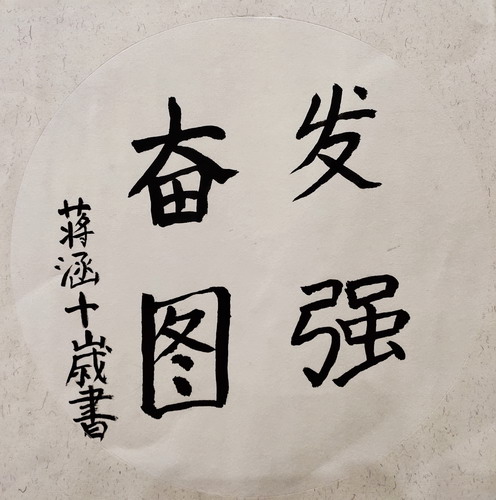 发强
奋图
蒋涵十歳書